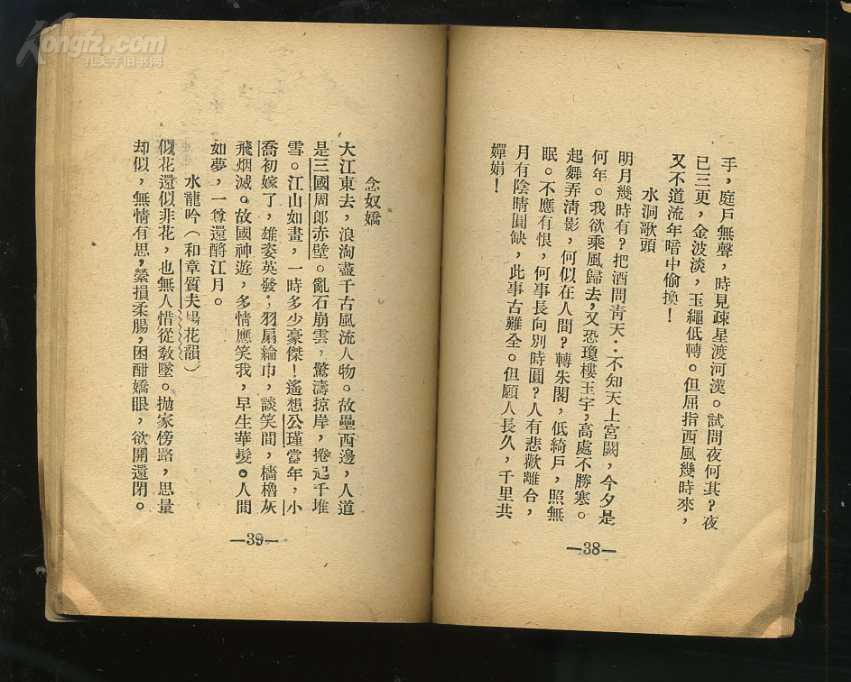 手，庭戶無聲，時見疎星渡河漢。試問夜何其？夜
已三更，金波淡，玉繩低轉。但屈指西風幾時來，
又不道流年暗中偷換！
水洞歌頭
明月幾時有？把酒問靑天：不知天上宮闕，今夕是
何年。我欲乘風歸去，又恐瓊樓玉宇，高處不勝寒。
起舞弄淸影，何似在人間？轉朱閣，低綺戶，照無
眠。不應有恨，何事長向別時圓？人有悲歡離合，
月有陰晴圓缺，此事古難全。但願人長久，千里共
嬋娟！
—38—
念奴嬌
大江東去，浪淘盡千古風流人物。故壘西邊，人道
是三國周郎赤壁。亂石崩雲，驚濤掠岸，捲起千堆
雪。江山如畫，一時多少豪傑！遙想公瑾當年，小
喬初嫁了，雄姿英發，羽扇綸巾，談笑間，檣櫓灰
飛烟滅。故國神遊，多情應笑我，早生華髮。人間
如夢，一尊還酹江月。
水龍吟（和章質夫楊花韻）
似花還似非花，也無人惜從敎墜。拋家傍路，思量
却似，無情有思，縈損柔腸，困酣嬌眼，欲開還閉。
—39—
Kongfz.com
孔夫子旧书网